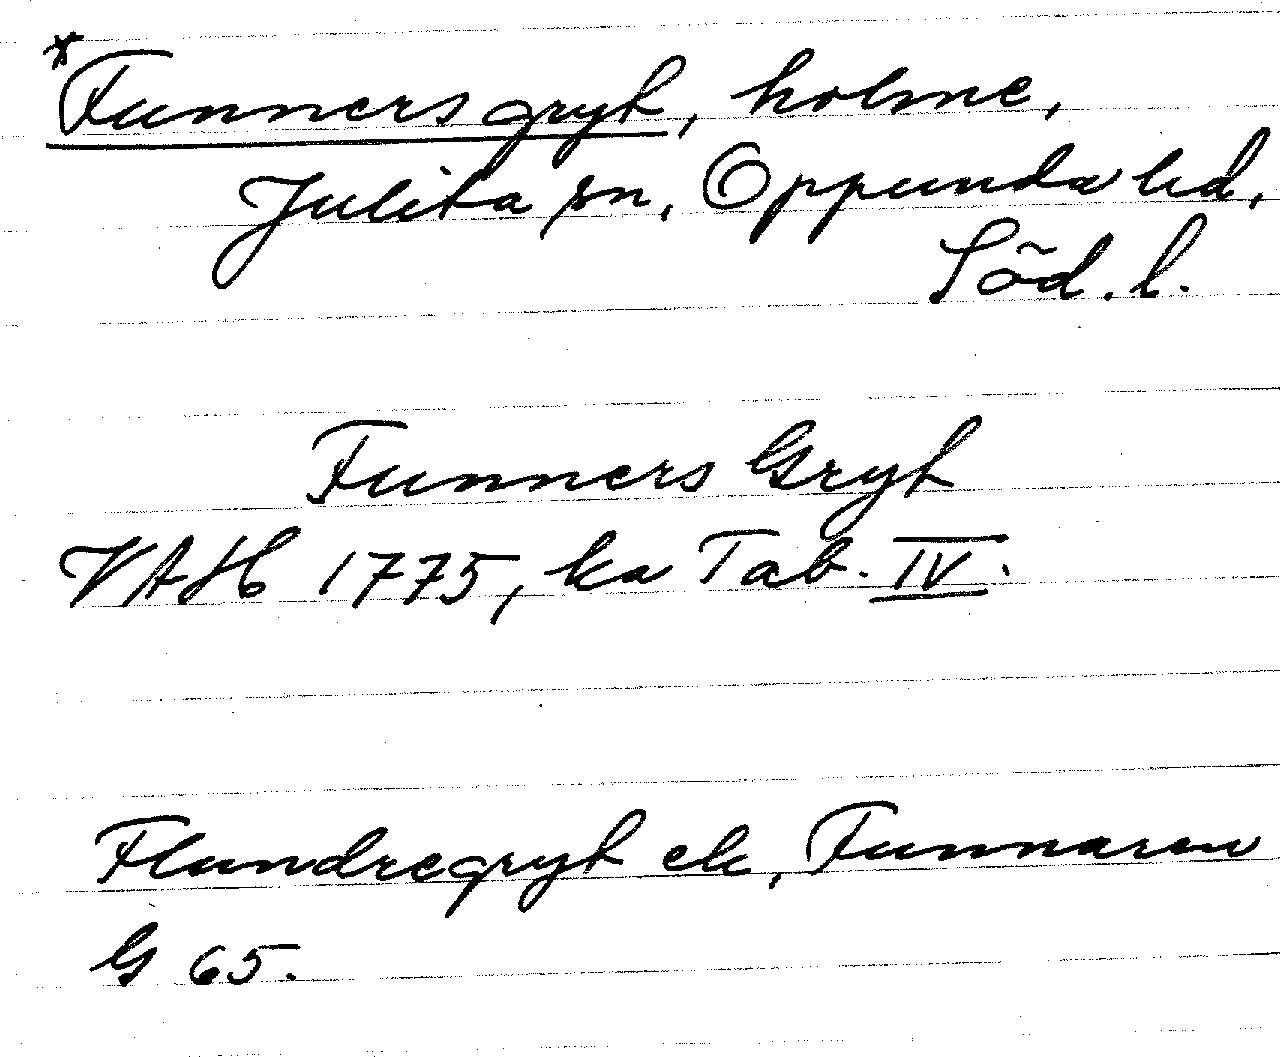 *Funnersgryt, holme,
Julita sn, Oppunda hd,
Söd. l.
Funners Gryt
VAH 1775, ka Tab. IV.
Flundregryt ek, Funnaren
G 65.